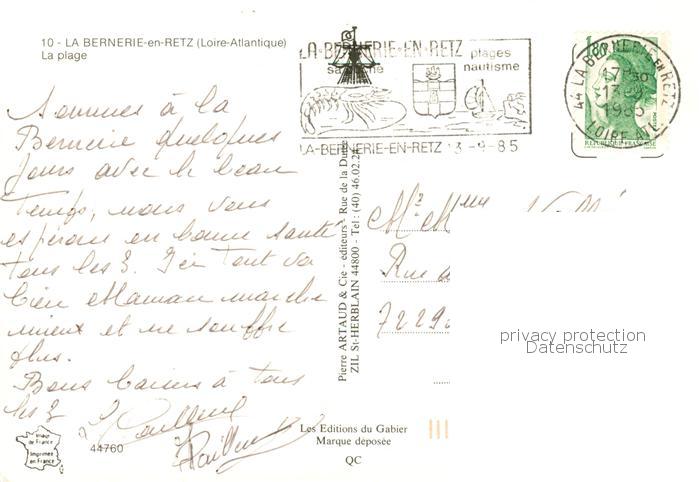 10 - LA BERNERIE-en-RETZ (Loire-Atlantique)
La plage
LA-BERNERIE-EN-RETZ
plages
nautisme
LA-BERNERIE-EN-RETZ 13-9-85
44 LA BERNERIE EN RETZ
13-9
1985
LOIRE ATL.
1,80
REPUBLIQUE FRANÇAISE
Sommes à la
Bernerie quelques
jours avec le beau
temps, nous vous
espérons en bonne santé
tous les 3. Ici tout va
bien et Maman marche
mieux et ne souffre
plus.
Bons baisers à tous
les 3
Pierre ARTAUD & Cie - éditeurs - Rue de la
ZIL St-HERBLAIN 44800 - Tel : (40) 46.02.2
Rue d
7229
privacy protection
Datenschutz
Image
de France
Imprimée
en France
44760
Les Editions du Gabier
Marque déposée
QC